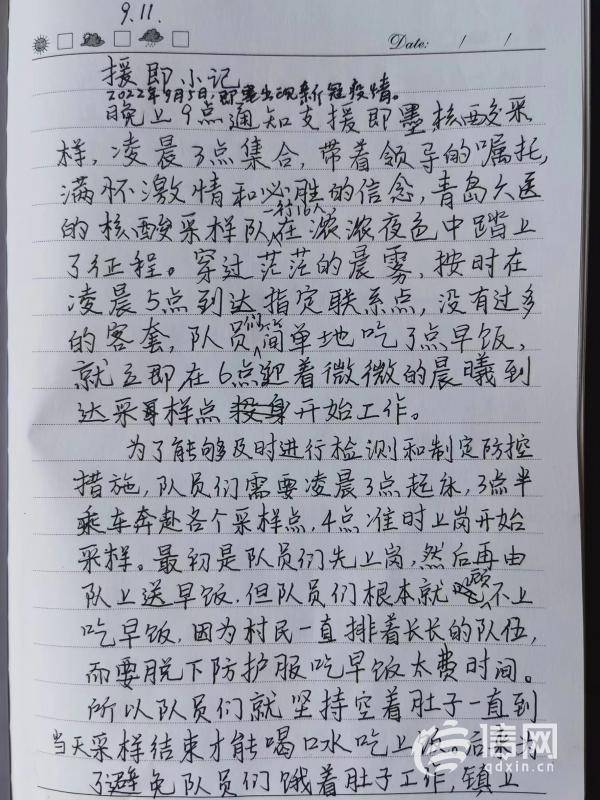 9.11.
Date: / /
援即小记
2022年9月5日,即墨出现新冠疫情。
晚上9点通知支援即墨核酸采
样,凌晨3点集合,带着领导的嘱托,
满怀激情和必胜的信念,青岛六医
一行16人
的核酸采样队在浓浓夜色中踏上
了征程。穿过茫茫的晨雾,按时在
凌晨5点到达指定联系点,没有过多
的客套,队员们简单地吃了点早饭,
就立即在6点迎着微微的晨曦到
达采样点开始工作。
为了能够及时进行检测和制定防控
措施,队员们需要凌晨3点起床,3点半
乘车奔赴各个采样点,4点准时上岗开始
采样。最初是队员们先上岗,然后再由
队上送早饭.但队员们根本就顾不上
吃早饭,因为村民一直排着长长的队伍,
而要脱下防护服吃早饭太费时间。
所以队员们就坚持空着肚子一直到
当天采样结束才能喝口水吃上饭。后来为
了避免队员们饿着肚子工作,镇上
信网
qdxin.cn